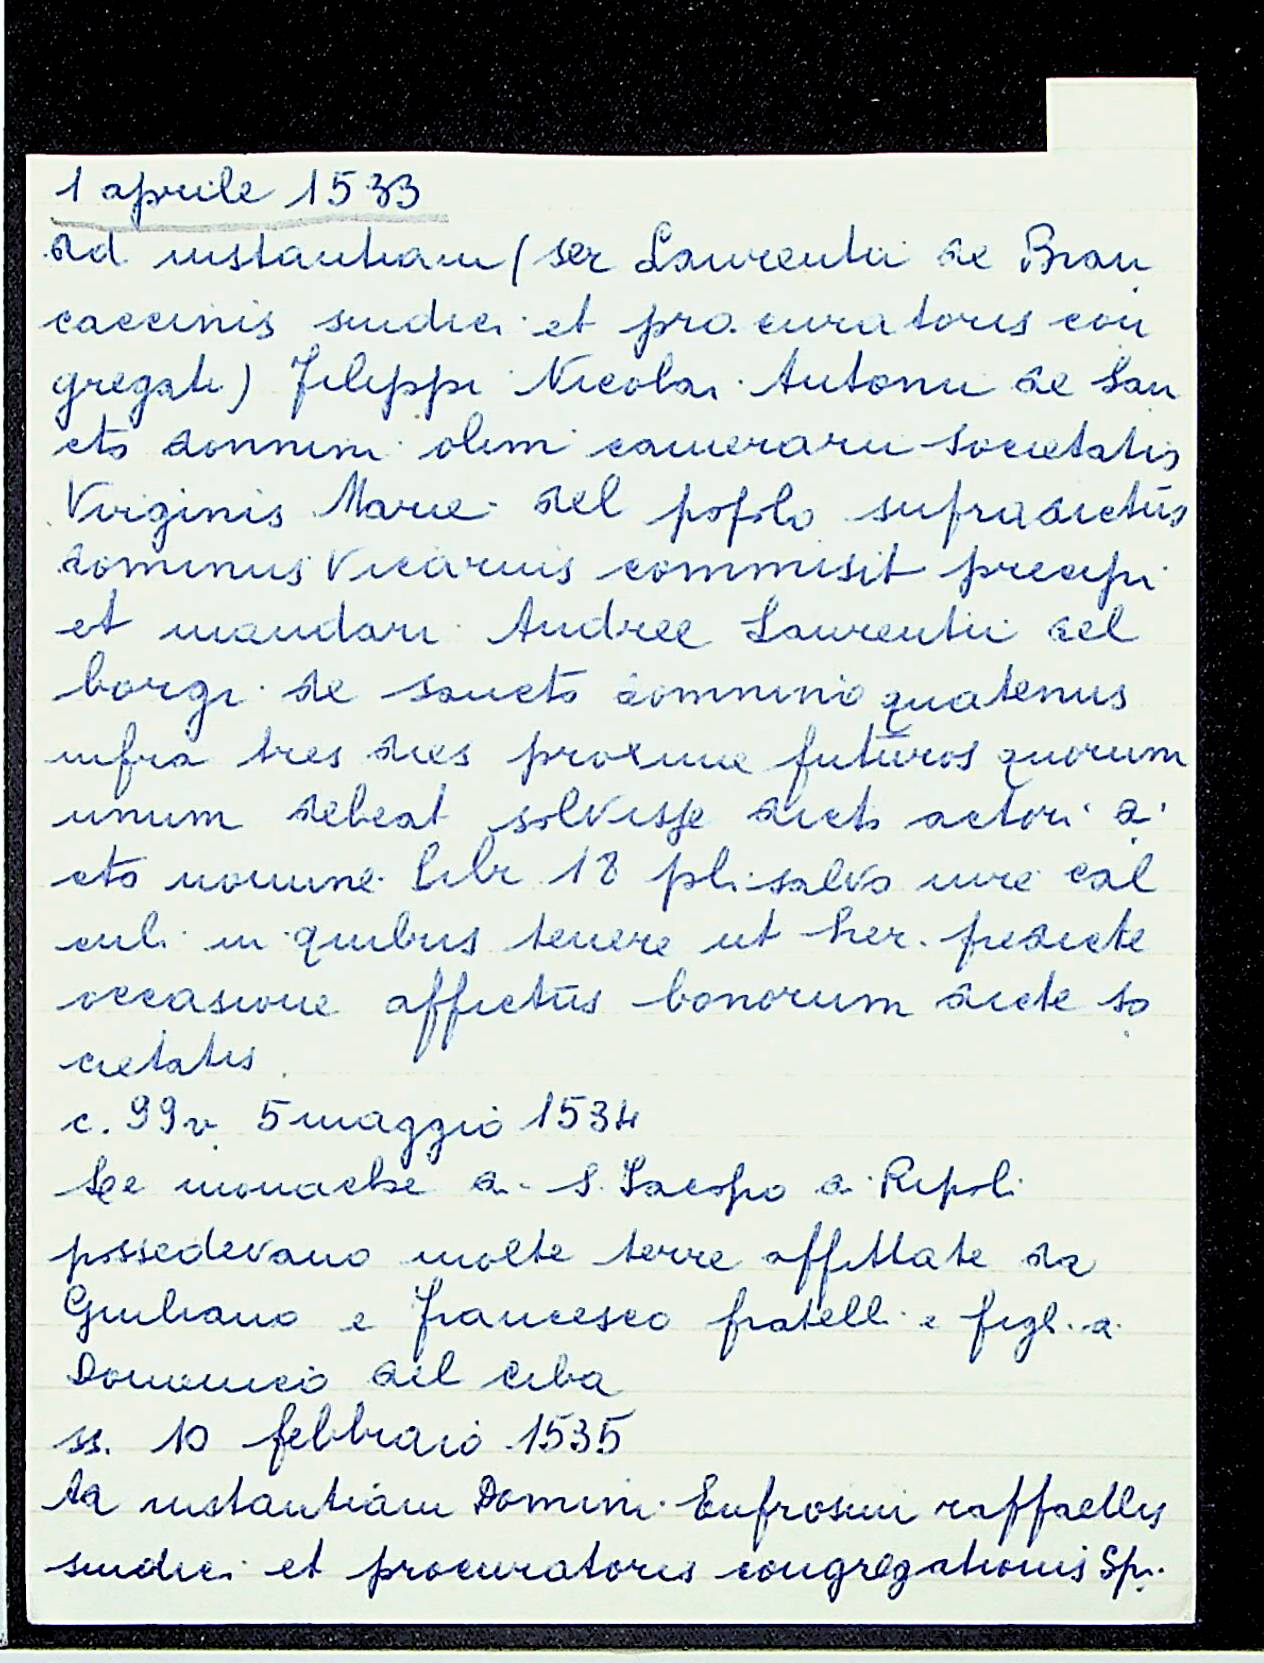 1 aprile 1533
Ad instantiam (ser Laurentii de Bran
caccinis sindici et procuratoris con
gregati) Filippi Nicolai Antonii de San
cto donnini olim camerarii societatis
Virginis Marie del popolo supradictus
dominus Vicarius commisit precipi
et mandari Andree Laurentii del
borgi de sancto domnino quatenus
infra tres dies proxime futuros quorum
unum debeat solvisse dicto actori di
cto nomine Libr 18 pli salvo iure cal
culi in quibus tenere ut her. predicte
occasione affictus bonorum dicte so
cietatis
c. 99v 5 maggio 1534
Le monache di S. Iacopo di Ripoli
possedevano molte terre affittate da
Giuliano e Francesco fratelli e figli di
Domenico del ciba
ss. 10 febbraio 1535
Ad instantiam Domini Eufrosini raffaellis
sindici et procuratoris congregationis Spi.